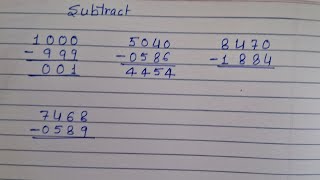 Subtract
1000 5040 8470
- 999 -0586 -1884
001 4454
7468
-0589